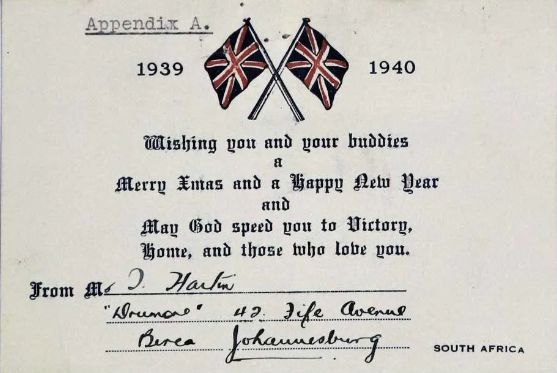 Appendix A.
1939 1940
Wishing you and your buddies
a
Merry Xmas and a Happy New Year
and
May God speed you to Victory,
Home, and those who love you.
From Ms J. Hartin
"Drumore" 42. Fife Avenue
Berea Johannesburg
SOUTH AFRICA